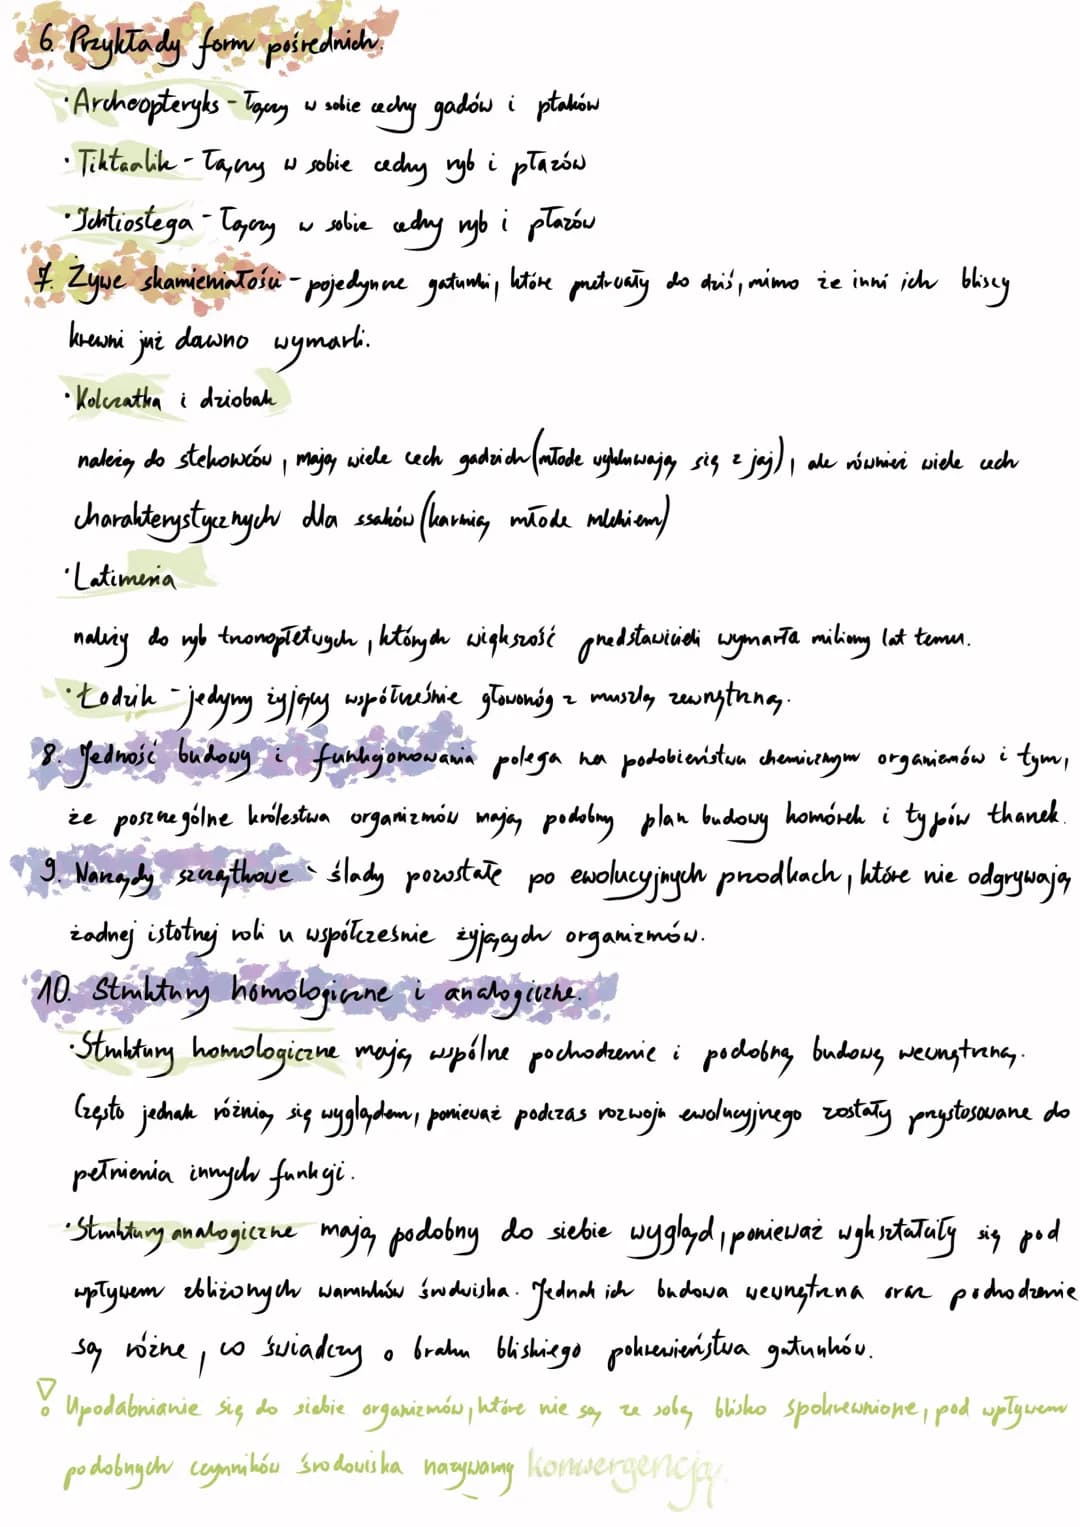 6. Przykłady form pośrednich.
· Archeopteryks - łączy w sobie cechy gadów i ptaków
· Tiktaalik - łączy w sobie cechy ryb i płazów
· Ichtiostega - łączy w sobie cechy ryb i płazów
7. Żywe skamieniałości - pojedyncze gatunki, które przetrwały do dziś, mimo że inni ich bliscy
krewni już dawno wymarli.
· Kolczatka i dziobak
należą do stekowców, mają wiele cech gadzich (młode wykluwają się z jaj), ale również wiele cech
charakterystycznych dla ssaków (karmią młode mlekiem)
· Latimeria
należy do ryb trzonopłetwych, których większość przedstawicieli wymarła miliony lat temu.
· Łodzik - jedyny żyjący współcześnie głowonóg z muszlą zewnętrzną.
8. Jedność budowy i funkcjonowania polega na podobieństwu chemicznym organizmów i tym,
że poszczególne królestwa organizmów mają podobny plan budowy komórek i typów tkanek.
9. Narządy szczątkowe - ślady pozostałe po ewolucyjnych przodkach, które nie odgrywają
żadnej istotnej roli u współcześnie żyjących organizmów.
10. Struktury homologiczne i analogiczne.
· Struktury homologiczne mają wspólne pochodzenie i podobną budowę wewnętrzną.
Często jednak różnią się wyglądem, ponieważ podczas rozwoju ewolucyjnego zostały przystosowane do
pełnienia innych funkcji.
· Struktury analogiczne mają podobny do siebie wygląd, ponieważ wykształciły się pod
wpływem zbliżonych warunków środowiska. Jednak ich budowa wewnętrzna oraz pochodzenie
są różne, co świadczy o braku bliskiego pokrewieństwa gatunków.
! Upodabnianie się do siebie organizmów, które nie są ze sobą blisko spokrewnione, pod wpływem
podobnych czynników środowiska nazywamy konwergencją.